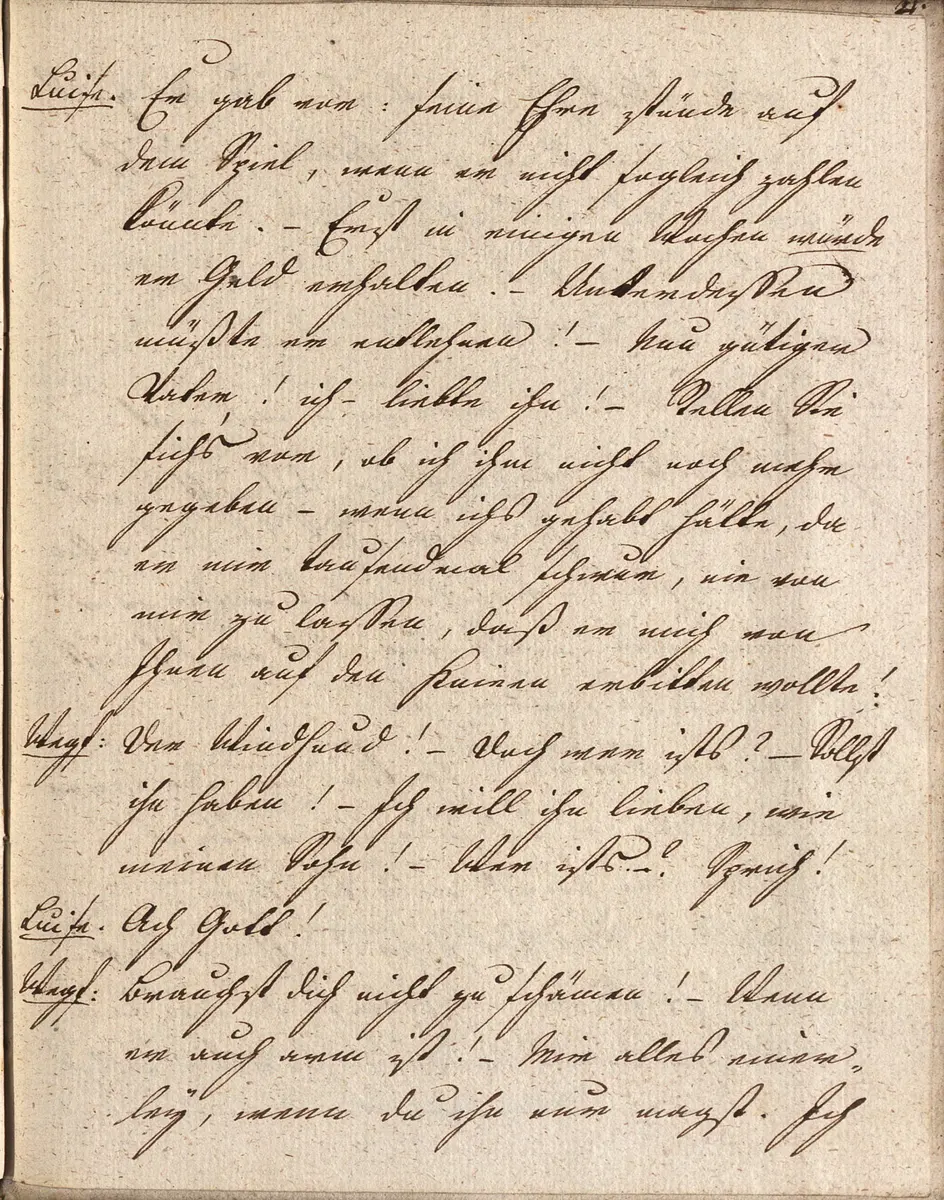 Luise. Er gab vor: seine Ehre stünde auf
dem Spiel, wenn er nicht sogleich zahlen
könnte. – Erst in einigen Wochen würde
er Geld erhalten. – Unterdessen
müßte er entlehnen! – Nun gütiger
Vater! ich – liebte ihn! – Stellen Sie
sichs vor, ob ich ihm nicht noch mehr
gegeben – wenn ichs gehabt hätte, da
er mir tausendmal schwur, nie von
mir zu lassen, daß er mich von
Ihnen auf den Knieen erbitten wollte!
Wegf: Der Windhund! – Doch wer ists? – Sollst
ihn haben! – Ich will ihn lieben, wie
meinen Sohn! – Wer ists –? Sprich!
Luise. Ach Gott!
Wegf: Brauchst dich nicht zu schämen! – Wenn
er auch arm ist! – Mir alles einer-
ley, wenn du ihn nur magst. Ich